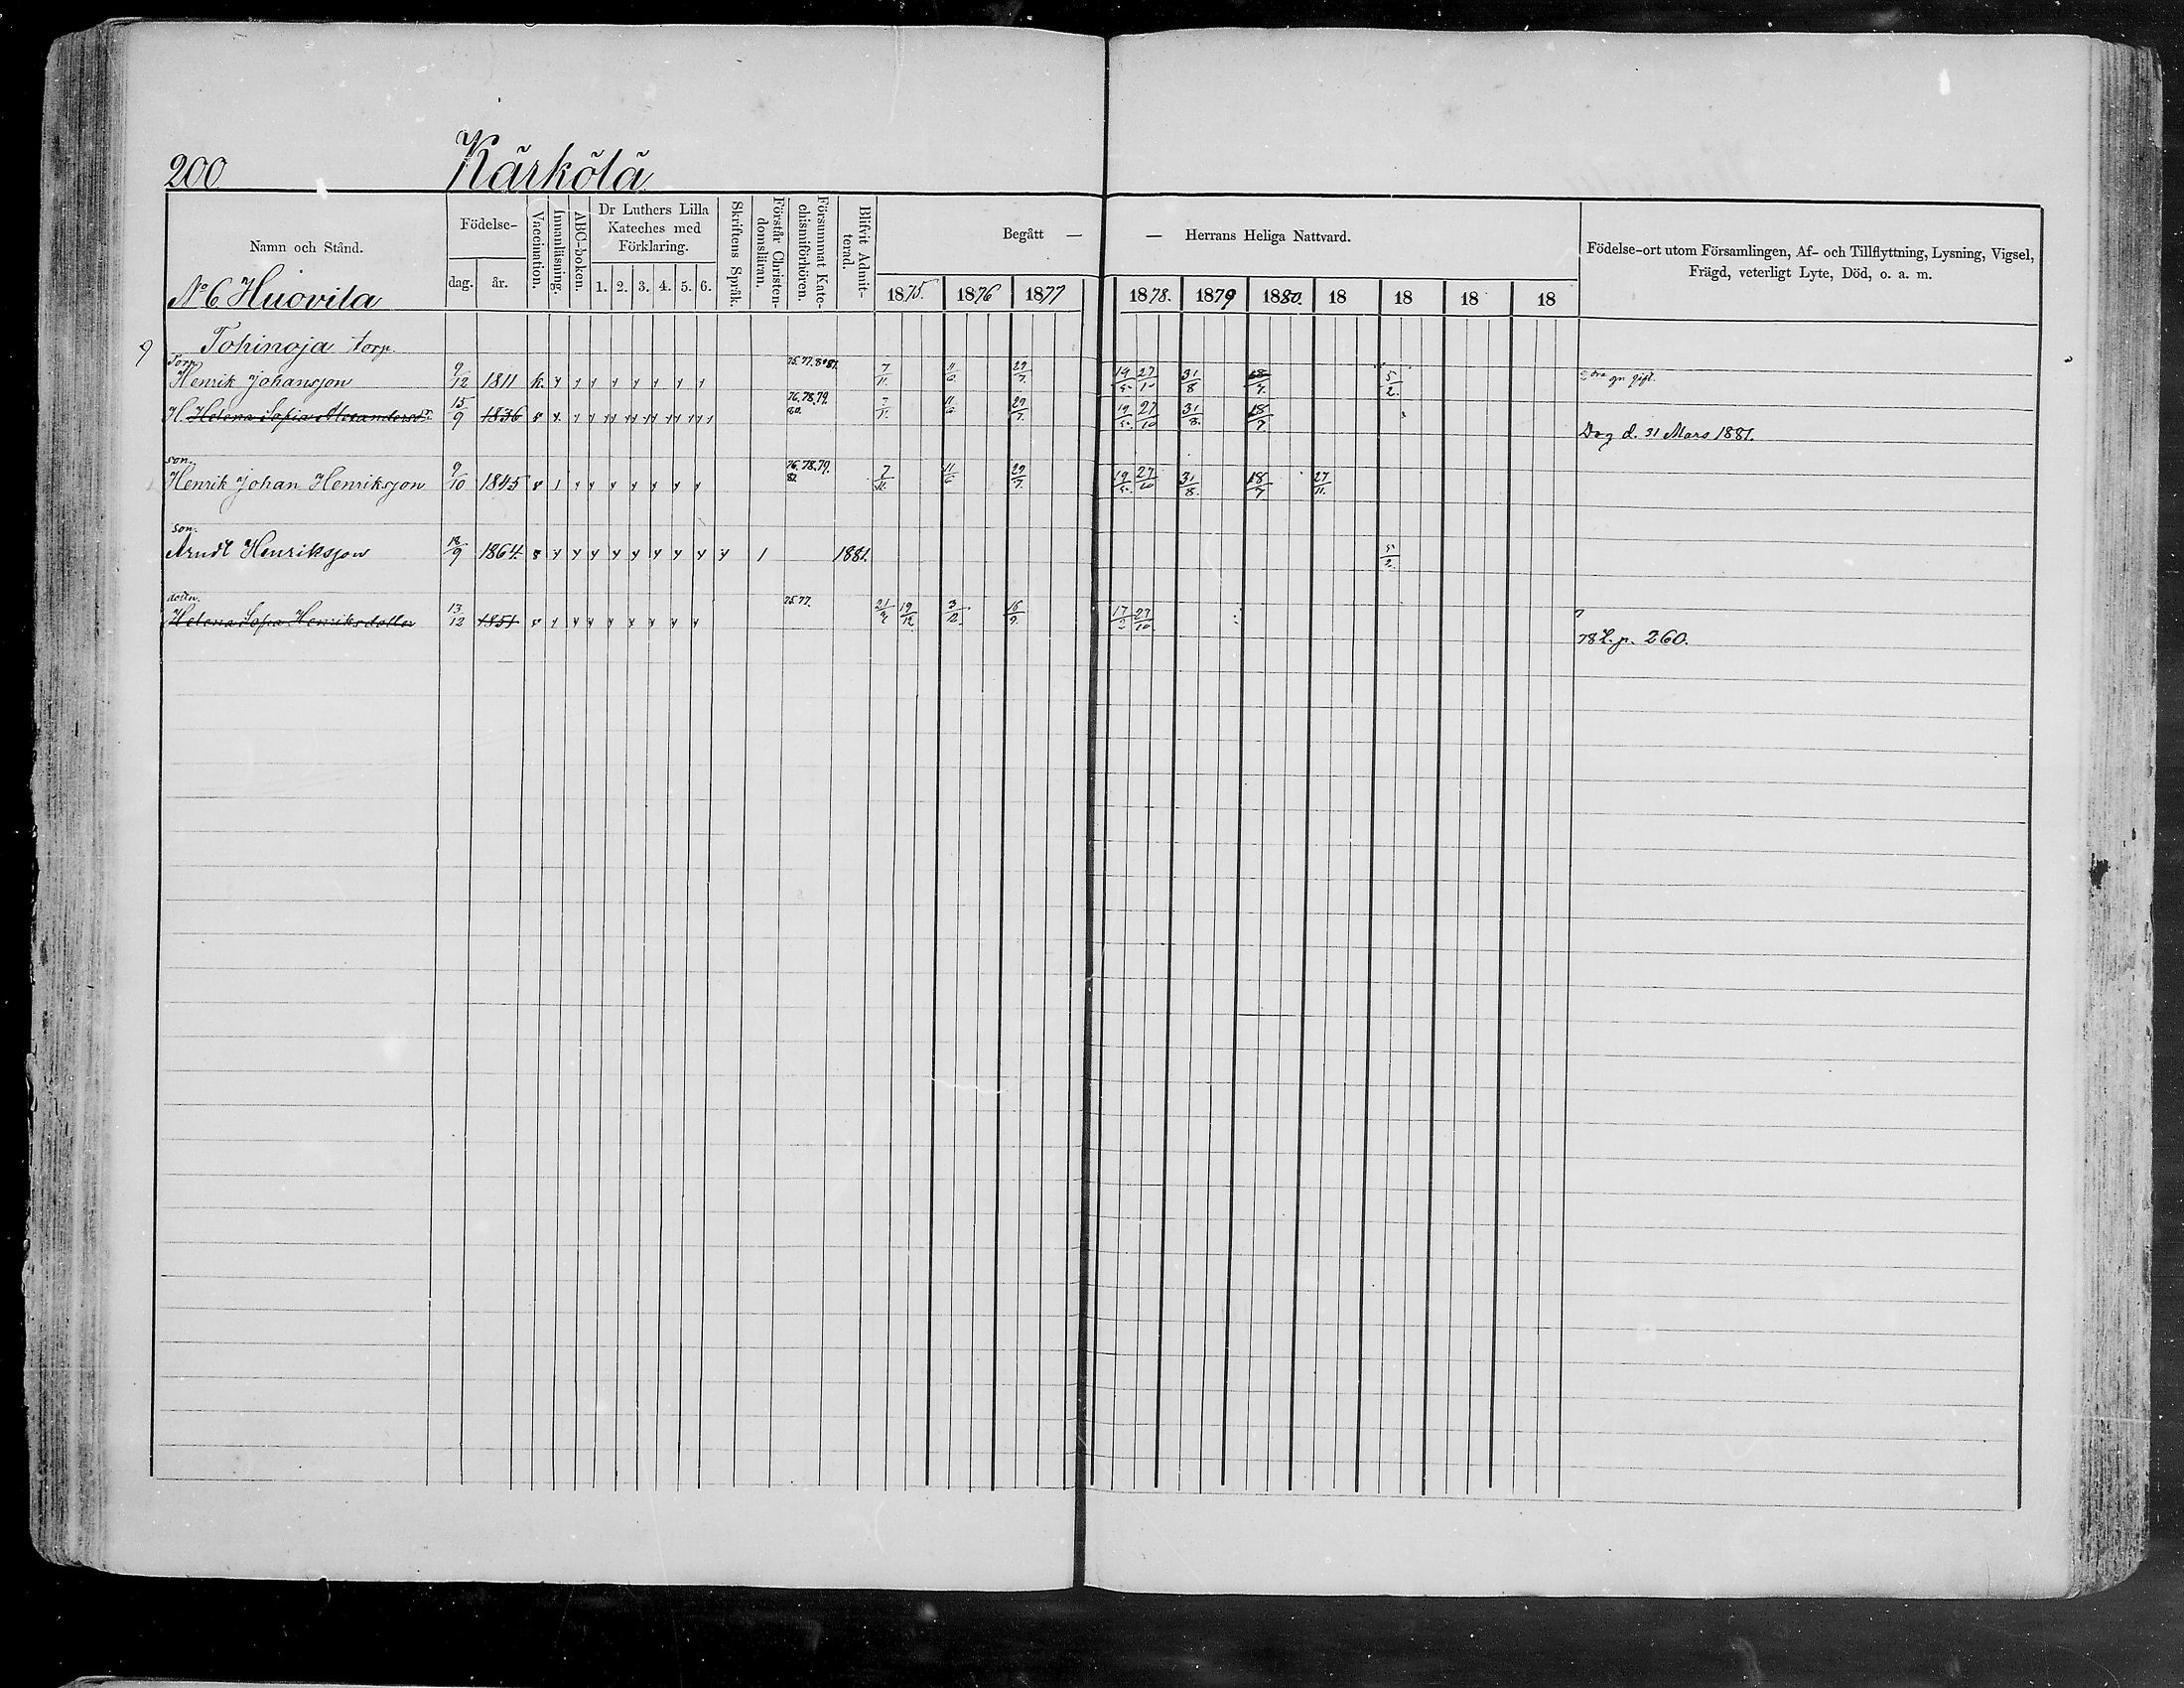 200 Kärkölä
Namn och Stånd.
Födelse-
dag. år.
Vaccination.
Innanläsning.
ABC-boken.
Dr Luthers Lilla
Kateches med
Förklaring.
1. 2. 3. 4. 5. 6.
Skriftens Språk.
Förstår Christen-
domsläran.
Försummat Kate-
chismiförhören.
Blifvit Admit-
terad.
Begått — — Herrans Heliga Nattvard.
1875. 1876 1877 1878. 1879 1880. 18 18 18 18
Födelse-ort utom Församlingen, Af- och Tillflyttning, Lysning, Vigsel,
Frägd, veterligt Lyte, Död, o. a. m.
No 6 Huovila
9 Tohinoja torp.
Torp.
Henrik Johansson 9/12 1811 k. 75.77.8081. 7/11. 11/6 29/7. 19/5. 27/10 31/8 18/7. 5/2. gift.
H. Helena Sofia Alexandersdr. 15/9 1836 76.78.79. 80. 7/11. 11/6 29/7. 19/5. 27/10 31/8. 18/7.
Dog d. 31 Mars 1881.
son.
Henrik Johan Henriksson 9/10 1845 76.78.79. 82. 7/11. 11/6 29/7. 19/5. 27/10 31/8. 18/7 27/11.
son.
Arndt Henriksson 18/9 1864. 1 1881. 5/2.
dottn.
Helena Sofia Henriksdotter 13/12 1851 75 77. 21/2 19/12. 3/12. 16/9. 17/2 27/10.
78 L. p. 260.